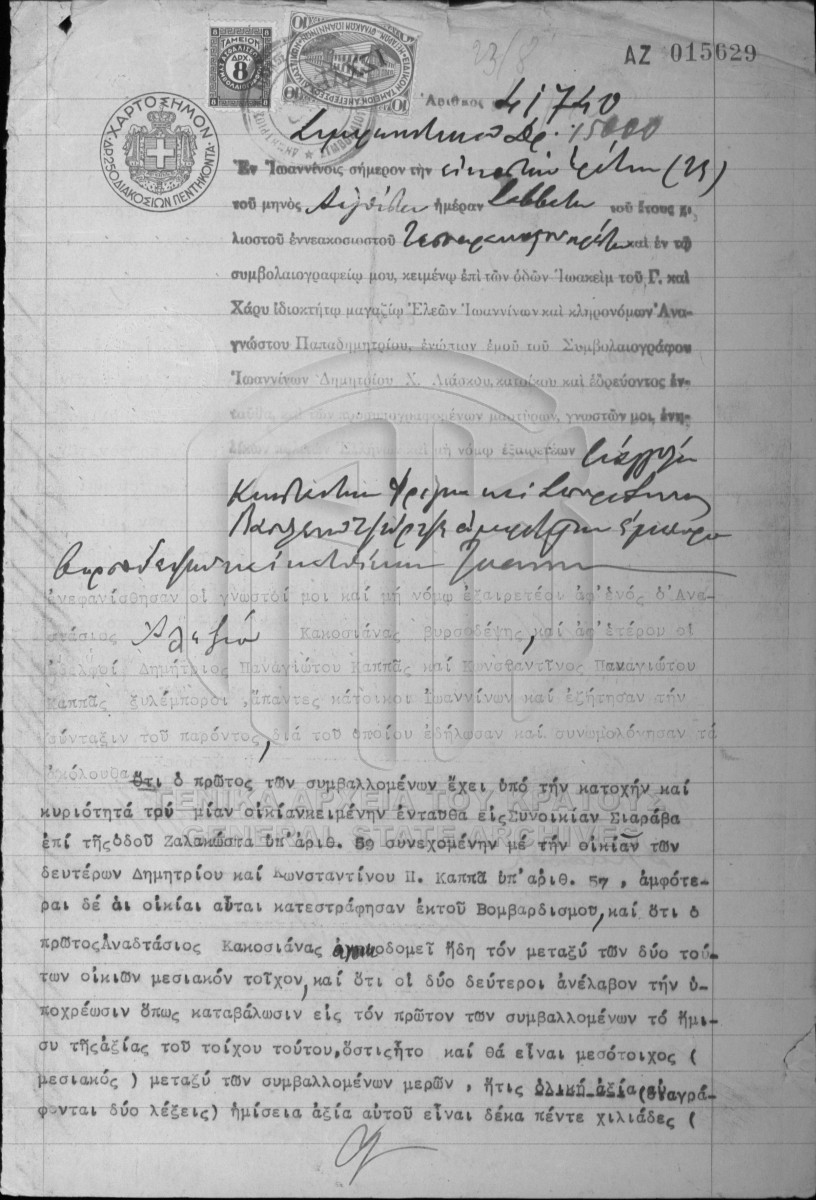 ΤΑΜΕΙΟΝ
ΔΡΧ.
8
10
ΑΖ 015629
23/8
Ἀριθμὸς 41740
ΧΑΡΤΟΣΗΜΟΝ
ΔΡ250 ΔΙΑΚΟΣΙΩΝ ΠΕΝΤΗΚΟΝΤΑ
Δρ. 15000
Ἐν Ἰωαννίνοις σήμερον τὴν εἰκοστὴν τρίτην (23)
τοῦ μηνὸς Αὐγούστου ἡμέραν Σάββατον τοῦ ἔτους χι-
λιοστοῦ ἐννεακοσιοστοῦ τεσσαρακοστοῦ πρώτου καὶ ἐν τῷ
συμβολαιογραφείῳ μου, κειμένῳ ἐπὶ τῶν ὁδῶν Ἰωακεὶμ τοῦ Γ. καὶ
Χάρυ ἰδιοκτήτῳ μαγαζίῳ Ἐλεῶν Ἰωαννίνων καὶ κληρονόμων Ἀνα-
γνώστου Παπαδημητρίου, ἐνώπιον ἐμοῦ τοῦ Συμβολαιογράφου
Ἰωαννίνων Δημητρίου Χ. Λιάσκου, κατοίκου καὶ ἑδρεύοντος ἐν-
ταῦθα, καὶ τῶν προσυπογραφομένων μαρτύρων, γνωστῶν μοι, ἐνη-
λίκων πολιτῶν Ἑλλήνων καὶ μὴ νόμῳ ἐξαιρετέων
Κωνσταντίνου καὶ
ἔμπορο
καὶ κατοίκων Ἰωαννίνων
ἀνεφανίσθησαν οἱ γνωστοί μοι καί μή νόμῳ ἐξαιρετέοι ἀφ'ἑνός ὁ Ἀνα-
στάσιος Ἀλεξίου Κακοσιάνας βυρσοδέψης, καί ἀφ'ἑτέρου οἱ
ἀδελφοί Δημήτριος Παναγιώτου Καππᾶς καί Κωνσβαντῖνος Παναγιώτου
Καππᾶς ξυλέμποροι ,ἅπαντες κάτοικοι Ἰωαννίνων καί ἐζήτησαν τήν
σύνταξιν τοῦ παρόντος, διά τοῦ ὁποίου ἐδήλωσαν καί συνωμολόγησαν τά
ἀκόλουθα
ὅτι ὁ πρῶτος τῶν συμβαλλομένων ἔχει ὑπό τήν κατοχήν καί
κυριότητά τού μίαν οἰκίανκειμένην ἐνταῦθα εἰςΣυνοικίαν Σιαράβα
ΓΕΝΙΚΑ ΑΡΧΕΙΑ ΤΟΥ ΚΡΑΤΟΥΣ
GENERAL STATE ARCHIVES
ἐπί τῆςὁδοῦ Ζαλακώστα ὑπ'ἀριθ. 59 συνεχομένην μέ τήν οἰκίαν τῶν
δευτέρων Δημητρίου καί Κωνσταντίνου Π. Καππᾶ ὑπ'ἀριθ. 57 , ἀμφότε-
ραι δέ αἱ οἰκίαι αὗται κατεστράφησαν ἐκτοῦ Βομβαρδισμοῦ, καί ὅτι ὁ
πρῶτοςΑναδτάσιος Κακοσιάνας ἀνοικοδομεῖ ἤδη τόν μεταξύ τῶν δύο τού-
των οἰκιῶν μεσιακόν τοῖχον, καί ὅτι οἱ δύο δεύτεροι ἀνέλαβον τήν ὑ-
ποχρέωσιν ὅπως καταβάλωσιν εἰς τόν πρῶτον τῶν συμβαλλομένων τό ἥμι-
συ τῆςἀξίας τοῦ τοίχου τούτου,ὅστιςἦτο καί θά εἶναι μεσότοιχος (
μεσιακός ) μεταξύ τῶν συμβαλλομένων μερῶν , ἥτις ὁλική ἀξία αὐ(διαγρά-
φονται δύο λέξεις) ἡμίσεια ἀξία αὐτοῦ εἶναι δέκα πέντε χιλιάδες (